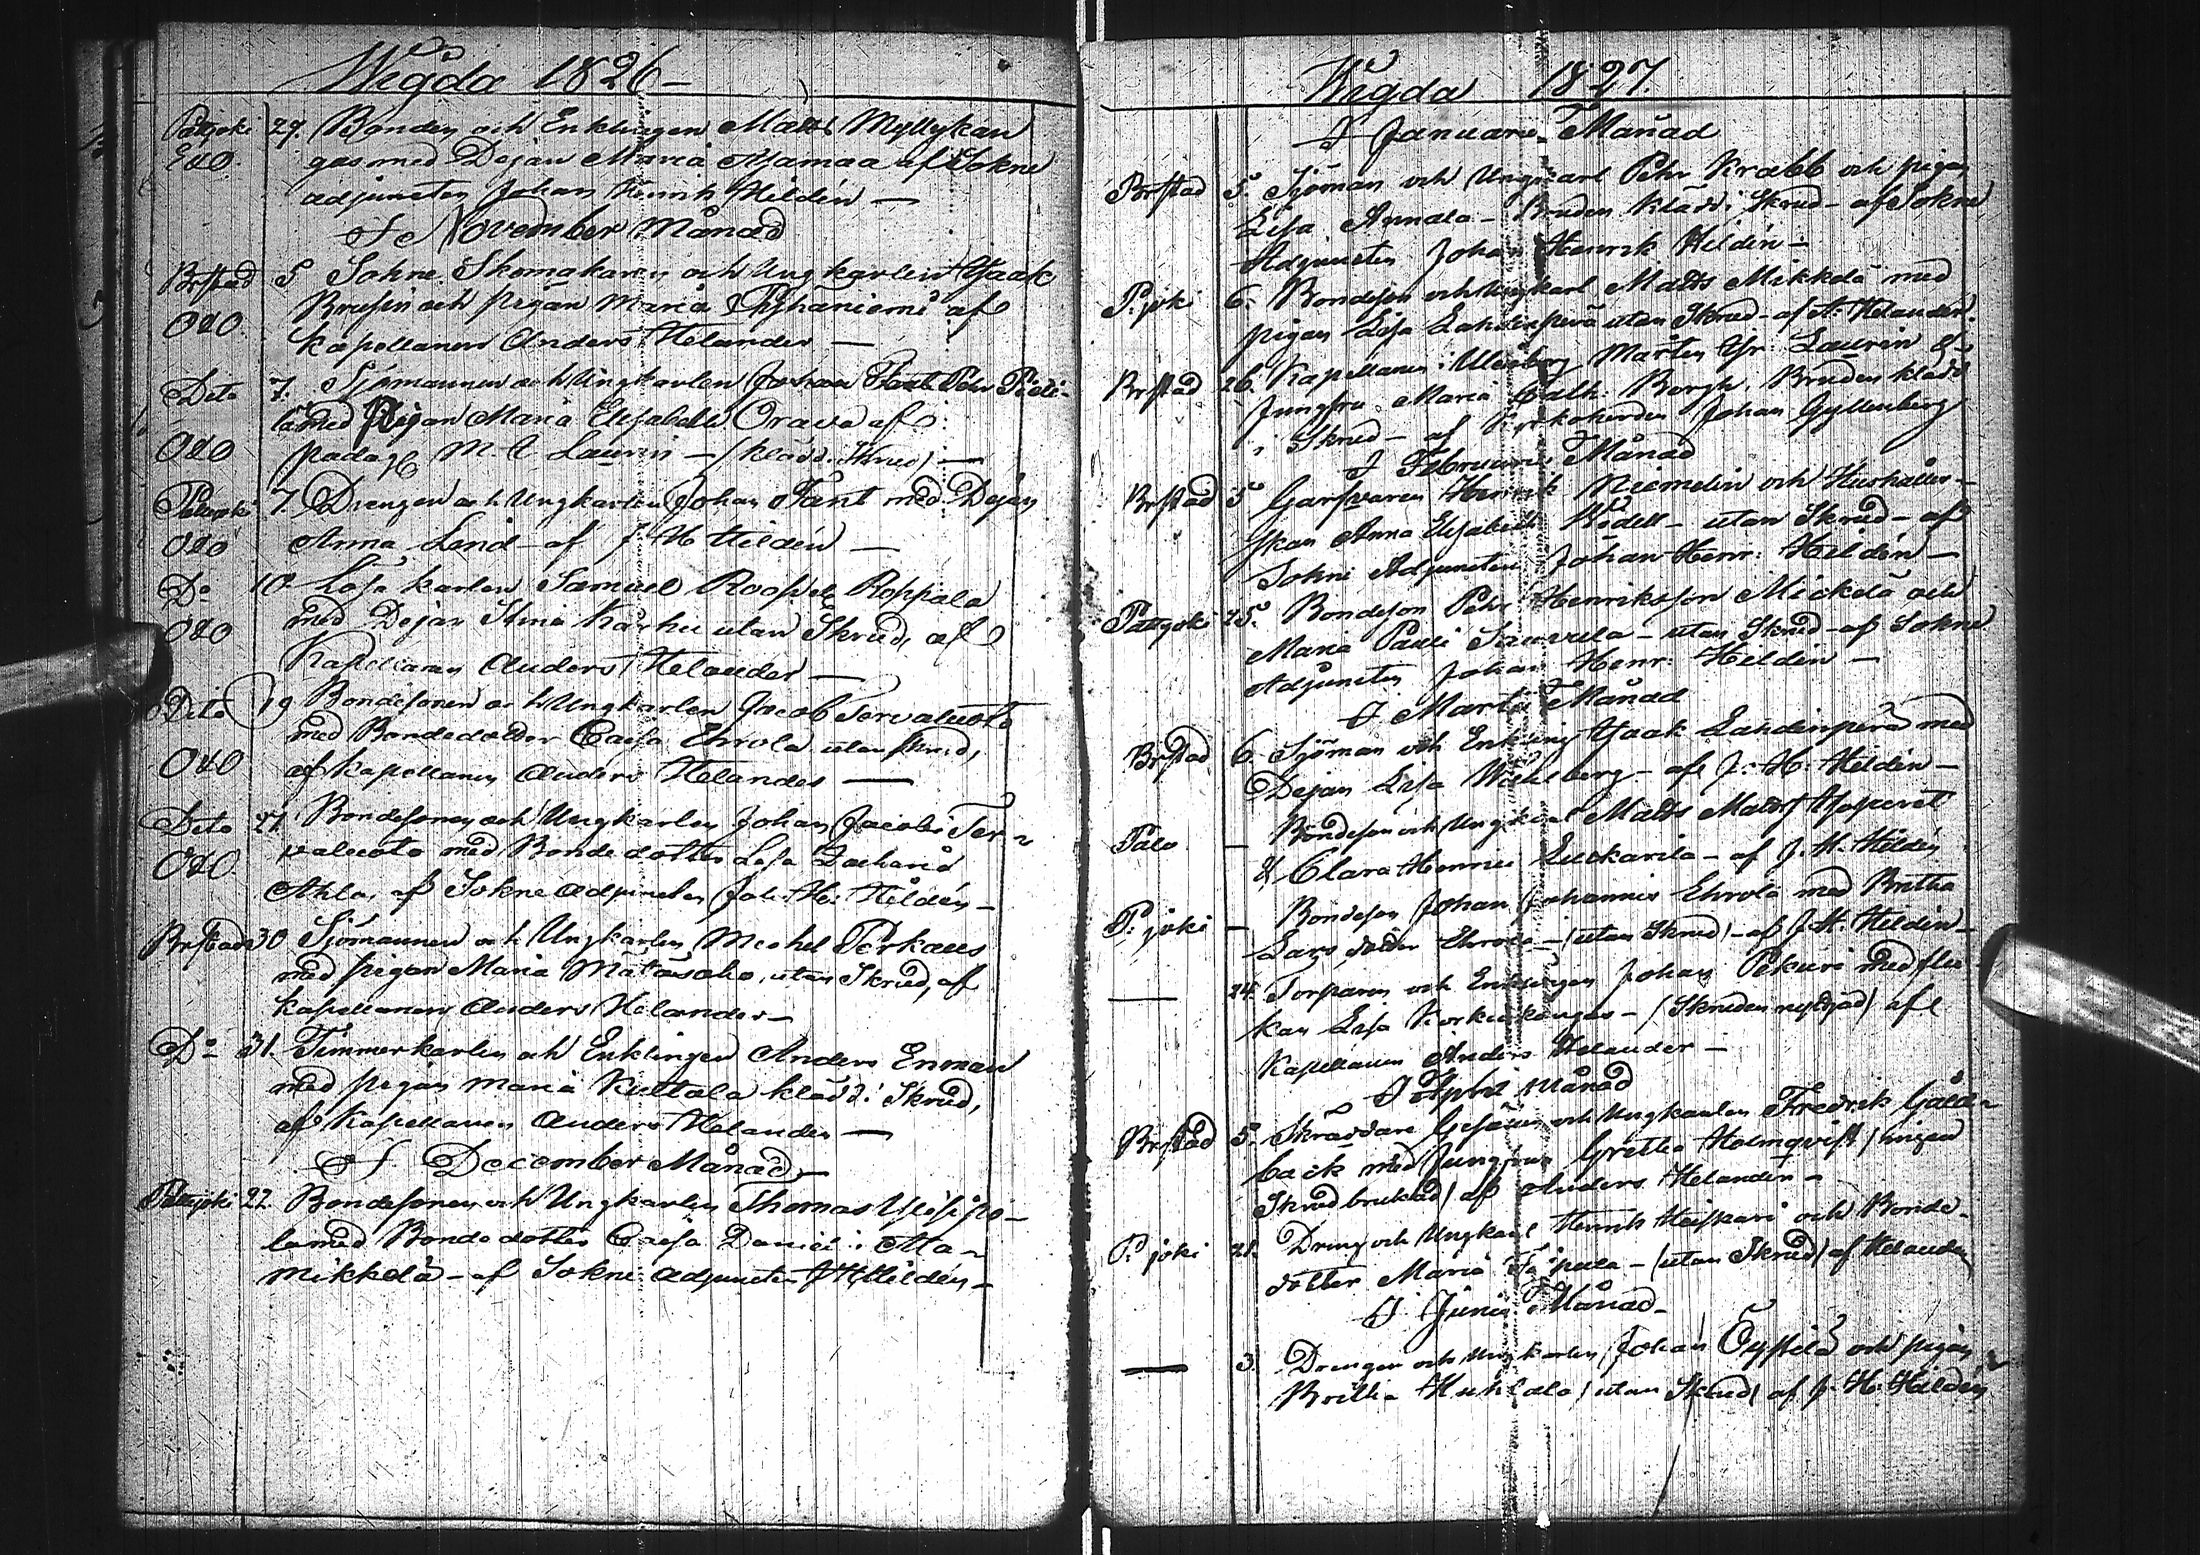 Wigda 1826
Pattijoki 29. Bonden och Enklingen Matts Myllykan
gas med Dejan Maria Ajamaa af Sokne
adjuncten Johan Henrik Hildén —
I November Månad
Brstad 5 Sokne Skomakaren och Ungkarlen Isaak
Brusin och pigan Maria Pyhäniemi af
kapellanen Anders Helander —
Dito 7. Sjömannen och Ungkarlen Johan Pehr
med Pigan Maria Elisabeth Orava af
padag M. L Laurin — (klädd i Skrud) —
7. Drengen och Ungkarlen Johan Fant med Dejan
Anna Lind — af J H Hildén —
Do 10. Löse karlen Samuel Roopala
med Dejan Stina Karhu utan Skrud, af
Kapellanen Anders Helander —
Dito 19 Bondesonen och Ungkarlen Jacob Tervaluoto
med Bondedotter Caisa Ehrola utan skrud,
af kapellanen Anders Helander —
Dito 27. Bondesonen och Ungkarlen Johan Jacobs Ter-
valuoto med Bonde dotter Lisa
Ahla, af Sokne adjuncten Joh: H: Hildén —
Brstad 30 Sjömannen och Ungkarlen Michel Perkaus
med pigan Maria Mätäsaho, utan Skrud, af
kapellanen Anders Helander —
Do 31. Timmerkarlen och Enklingen Anders Enman
med pigan Maria Kultala klädd i Skrud,
af Kapellanen Anders Helander —
I December Månad —
Pattijoki 27. Bondesonen och Ungkarlen Thomas
la med Bonde dotter Caisa Daniel Ala-
Mikkelä — af Sokne adjuncten J H Hildén —
Wigda 1827.
I Januarii Månad
Brstad 5. Sjöman och Ungkarl Pehr Krabb och pigan
Lisa Annala — Bruden klädd i Skrud — af Sokne
Adjuncten Johan Henrik Hildén —
P:joki 6. Bondeson och Ungkarl Matts Mikkelä med
pigan Lisa Lahdenperä utan Skrud — af A: Helander.
Brstad 26. Kapellanen i Uleåborg Mårten Laurin &
Jungfru Maria Cath: Borgh. Bruden klädd
i Skrud — af Kyrkoherden Johan Gyllenberg
I Februarii Månad
Brstad 5 Garfvaren Henrik Niemelin och Hushåller-
skan Anna Elisabeth Rödell — utan Skrud — af
Sokne Adjuncten Johan Henr: Hildén —
Pattijoki 25. Bondeson Pehr Henriksson Mickelä och
Maria Pauli Sauvula — utan Skrud — af Sokne
Adjuncten Johan Henr: Hildén —
I Martii Månad
Brstad 6. Sjöman och Enkling Isaak Lahdenperä med
Dejan Lisa — af J: H: Hildén —
Palo — Bondeson och Ungkarl Matts Matts
& Clara Luckarila — af J. H. Hildén
P: joki — Bondeson Johan Johannis Ehrola med Britha
Lars dotter Ehrola — (utan Skrud) — af J. H. Hildén —
— 24. Torparen och Enklingen Johan Pekuri med flic
kan Lisa Kirkukangas — (Skruden nyttjad) af
Kapellanen Anders Helander —
I April Månad
Brstad 5. Skräddare Gesällen och Ungkarlen Fredrik Gåld-
back med Jungfrun Gretha Holmqvist (ingen
Skrud brukad) af Anders Helander —
P: joki 21. Dreng och Ungkarl Henrik Heiskari och Bonde-
dotter Maria — (utan Skrud) af Helander
I Junii Månad —
— 3. Drengen och Ungkarlen Johan Öystilä och pigan
Britha Huhtala (utan Skrud) af J. H. Hildén